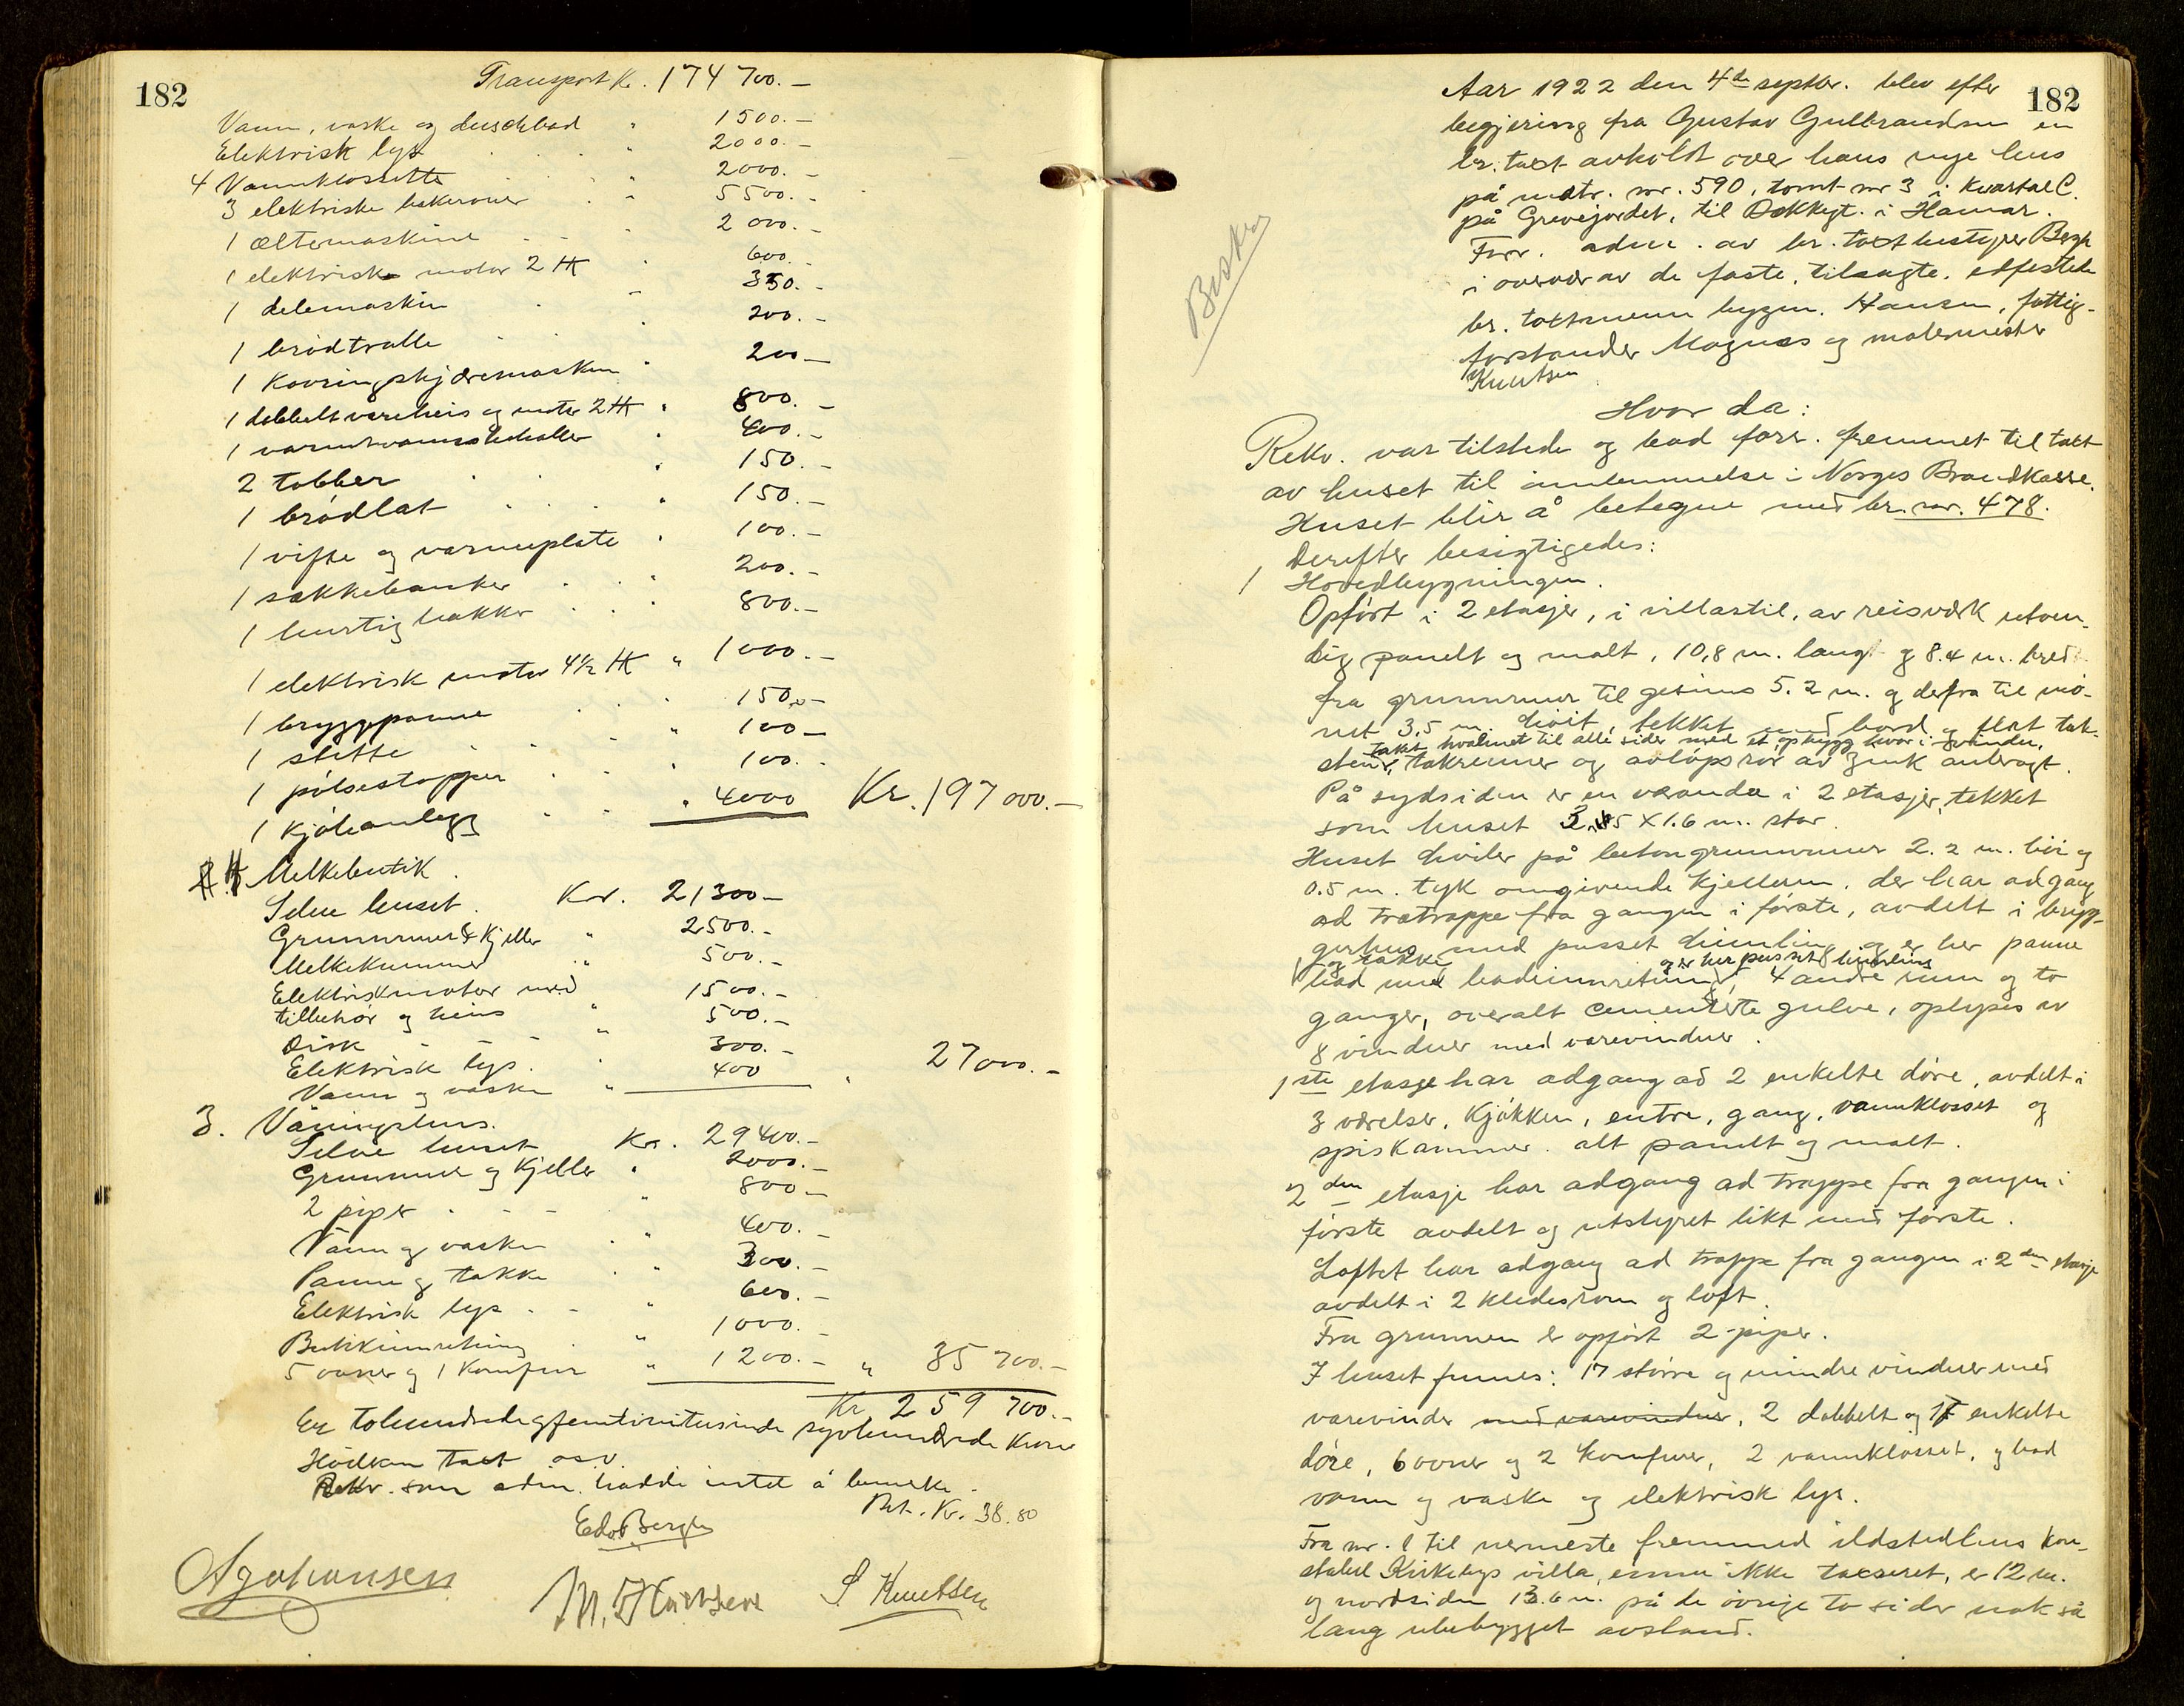 182
Transport Kr. 174 700.-
Vann, vaske og duschbad " 1500.-
Elektrisk lys " 2000.-
4 Vannklossette " 2000.-
3 elektriske bakerovner " 5500.-
1 æltemaskine " 2000.-
1 elektrisk motor 2 HK " 600.-
1 delemaskin " 350.-
1 brödtralle " 200.-
1 Kavringskjæremaskin " 200-
1 dobbelt vareheis og motor 2 HK " 800.-
1 varmtvannsbeholler " 400.-
2 tobber " 150.-
1 brödlat " 150.-
1 vifte og varmeplate " 100.-
1 sækkebanker " 200.-
1 hurtighakker " 800.-
1 elektrisk motor 4½ HK " 1000.-
1 bryggepanne " 150.-
1 støtte " 100-
1 pölsestopper " 100.-
1 kjöleanlegg " 4000 Kr. 197 000.-
Melkebutik.
Selve huset. Kr. 21300-
Grunnmur & Kjeller " 2500.-
Melkekummer " 500.-
Elektriskmotor med
tilbehör og heis " 1500.-
Disk " 500.-
Elektrisk lys. " 300.-
Vann og vaske " 400 " 27000.-
3. Våningshus.
Selve huset Kr. 29400.-
Grunnmur og Kjeller " 2000.-
2 piper " 800-
Vann og vaske " 400.-
Panne og takke " 300.-
Elektrisk lys " 600.-
Butikkinnretning " 1000.-
5 ovner og 1 Komfur " 1200.- " 35 700.-
Kr 259 700.-
Er tohundredeogfemtinitusinde syvhundrede Kroner
Höilken taxt osv.
Rekv. som adm. hadde intet å bemerke.
Bet. Kr. 38.80
Edv Bergh
A Johansen M. Hansen S Knutsen
182
Aar 1922 den 4de septbr. blev efter
begjering fra Gustav Gulbrandsen en
br. taxt avholdt over hans nye hus
på matr. nr. 590, tomt nr 3 i Kvartal C.
på Grevejordet, til Dækkgt. i Hamar.
Forr. adm. av br. taxtbestyrer Bergh
i overvær av de faste, tilsagte, edfestede
br. taxtmenn bygm. Hansen, fattig-
forstander Magnus og malermester
Knutsen
Beskr
Hvor da:
Rekv. var tilstede og bad forr. fremmet til taxt
av huset til innlemmelse i Norges Brandkasse.
Huset blir å betegne med br. nr. 478.
Derefter besigtigedes:
1 Hovedbygningen.
Opført i 2 etasjer, i villastil, av reisværk utven-
dig panelt og malt, 10,8 m. langt og 8.4 m. bredt
fra grunnmur til gesims 5.2 m. og derfra til mø-
net 3,5 m. höit, tekket med bord og flat tak-
taket hvalmet til alle sider med et opbygg hvor i 8 vinduer,
sten, takrenner og avløpsrør av zink anbragt.
På sydsiden er en veranda i 2 etasjer, tekket
som huset 3,45 x 1.6 m. stor.
Huset hviler på betongrunnmur 2.2 m. höi og
0.5 m. tyk omgivende Kjelleren, der har adgang
ad trætrappe fra gangen i förste, avdelt i bryg-
gerhus med pusset himling og er her panne
og takke og er her pusset himling
bad med badeinnretning, 4 andre rum og to
ganger, overalt cementerte gulve, oplyses av
8 vinduer med varevinduer.
1ste etasje har adgang ad 2 enkelte døre, avdelt i
3 værelser, Kjökken, entre, gang, vannklosset og
spiskammer. alt panelt og malt.
2den etasje har adgang ad trappe fra gangen i
förste avdelt og utstyret likt med förste.
Loftet har adgang ad trappe fra gangen i 2den etasje
avdelt i 2 kledesrom og loft.
Fra grunnen er opfört 2 piper.
I huset finnes: 17 större og mindre vinduer med
varevinder med varevinduer, 2 dobbelt og 17 enkelte
döre, 6 ovner og 2 Komfurer, 2 vannklosset, og bad
vann og vaske og elektrisk lys.
Fra nr. 1 til nermeste fremmed ildstedhus Kon-
stabel Kirkebys villa, ennu ikke taxseret, er 12 m.
og nordsiden 13.6 m. på de övrige to sider nok så
lang ubebygget avstand.